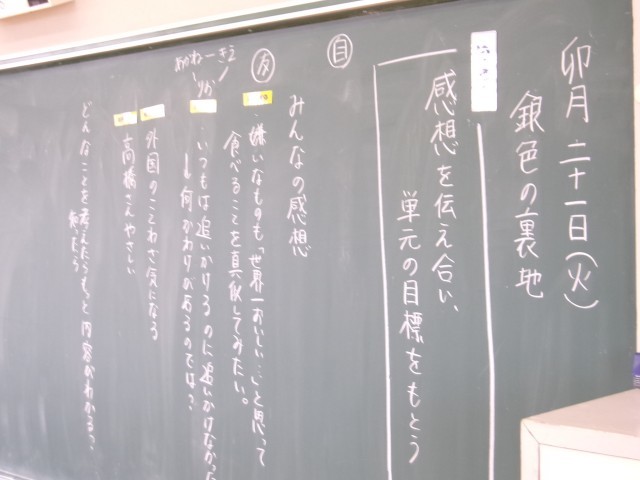 卯月 二十一日(火)
銀色の裏地
感想を伝え合い、
単元の目標をもとう
自
みんなの感想
友
嫌いなものも「世界一おいしい…」と思って
食べることを真似してみたい。
いつもは追いかけるのに追いかけなかった
何かわけがあるのでは?
外国のことわざ気になる
高橋さんやさしい
どんなことを考えたらもっと内容がわかる?